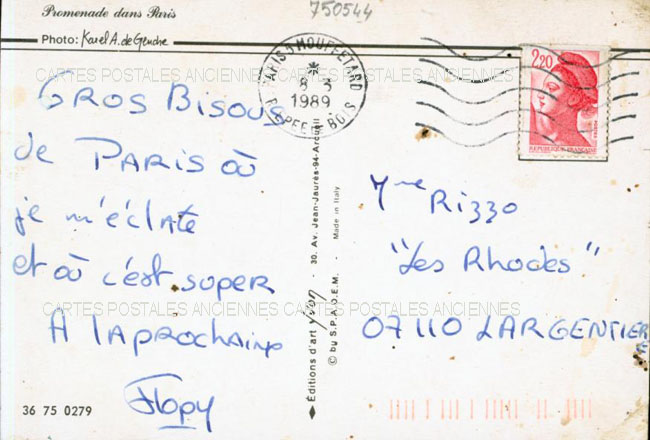 Promenade dans Paris
750544
Photo: Karel A. de Gendre
PARIS 5 MOUFFETARD
8-3
1989
R. EPEE DE BOIS
2,20
REPUBLIQUE FRANÇAISE
CARTES POSTALES ANCIENNES CARTES POSTALES ANCIENNES
GROS BISOUS
de PARIS où
je m'éclate
et où c'est super
A laprochaine
Flopy
Mme Rizzo
"Les Rhodes"
07110 LARGENTIERE
CARTES POSTALES ANCIENNES CARTES POSTALES ANCIENNES
Éditions d'art yvon - 30, Av. Jean-Jaurès-94-Arcueil
© by S.P.A.D.E.M. - Made in Italy
36 75 0279